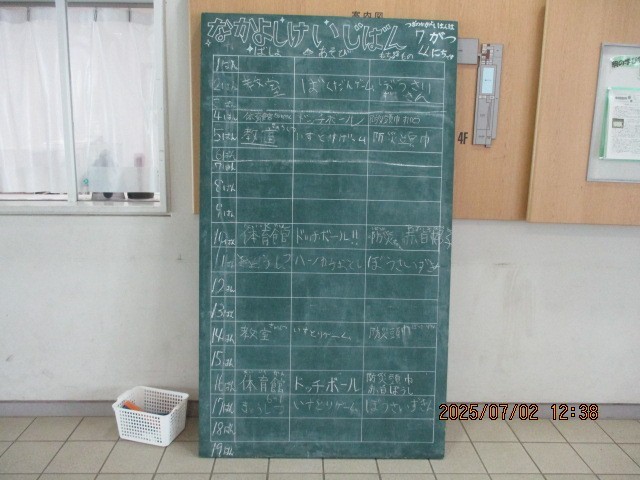 なかよしけいじばん
7がつ
ばしょ あそび もちもの
1はん
教室 ばくだんゲーム ぼうさいずきん
4はん 体育館 ドッチボール
5はん 教室 いすとりゲーム 防災頭巾
7はん
8はん
9はん
10はん 体育館 ドッチボール!! 防災 赤白帽子
11はん ハンカチおとし ぼうさいずきん
12はん
13はん
14はん 教室 いすとりゲーム 防災頭巾
15はん
16はん 体育館 ドッチボール 防災頭巾
赤白ぼうし
17はん いすとりゲーム ぼうさいずきん
18はん
19はん
案内図
4F
2025/07/02 12:38